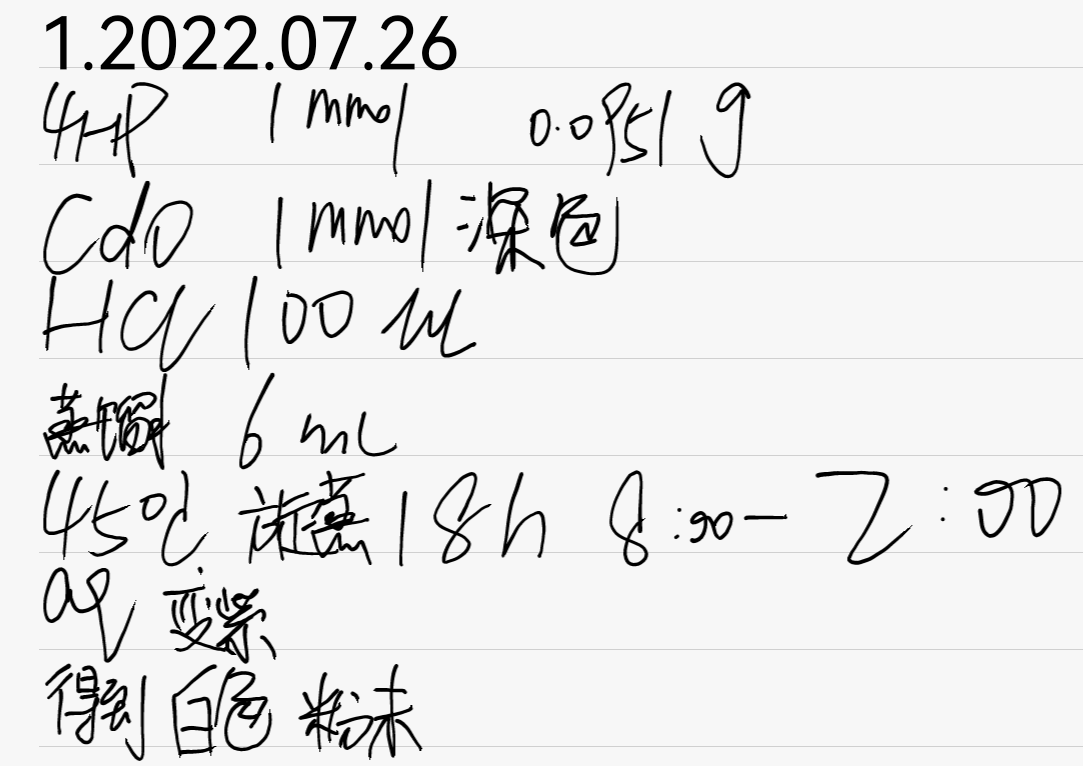 1.2022.07.26
4HP 1 mmol 0.0951 g
CdO 1 mmol 深色
HCl 100 ul
蒸馏 6 mL
45℃ 旋蒸 18h 8:00— 2:00
aq 变紫
得到 白色 粉末